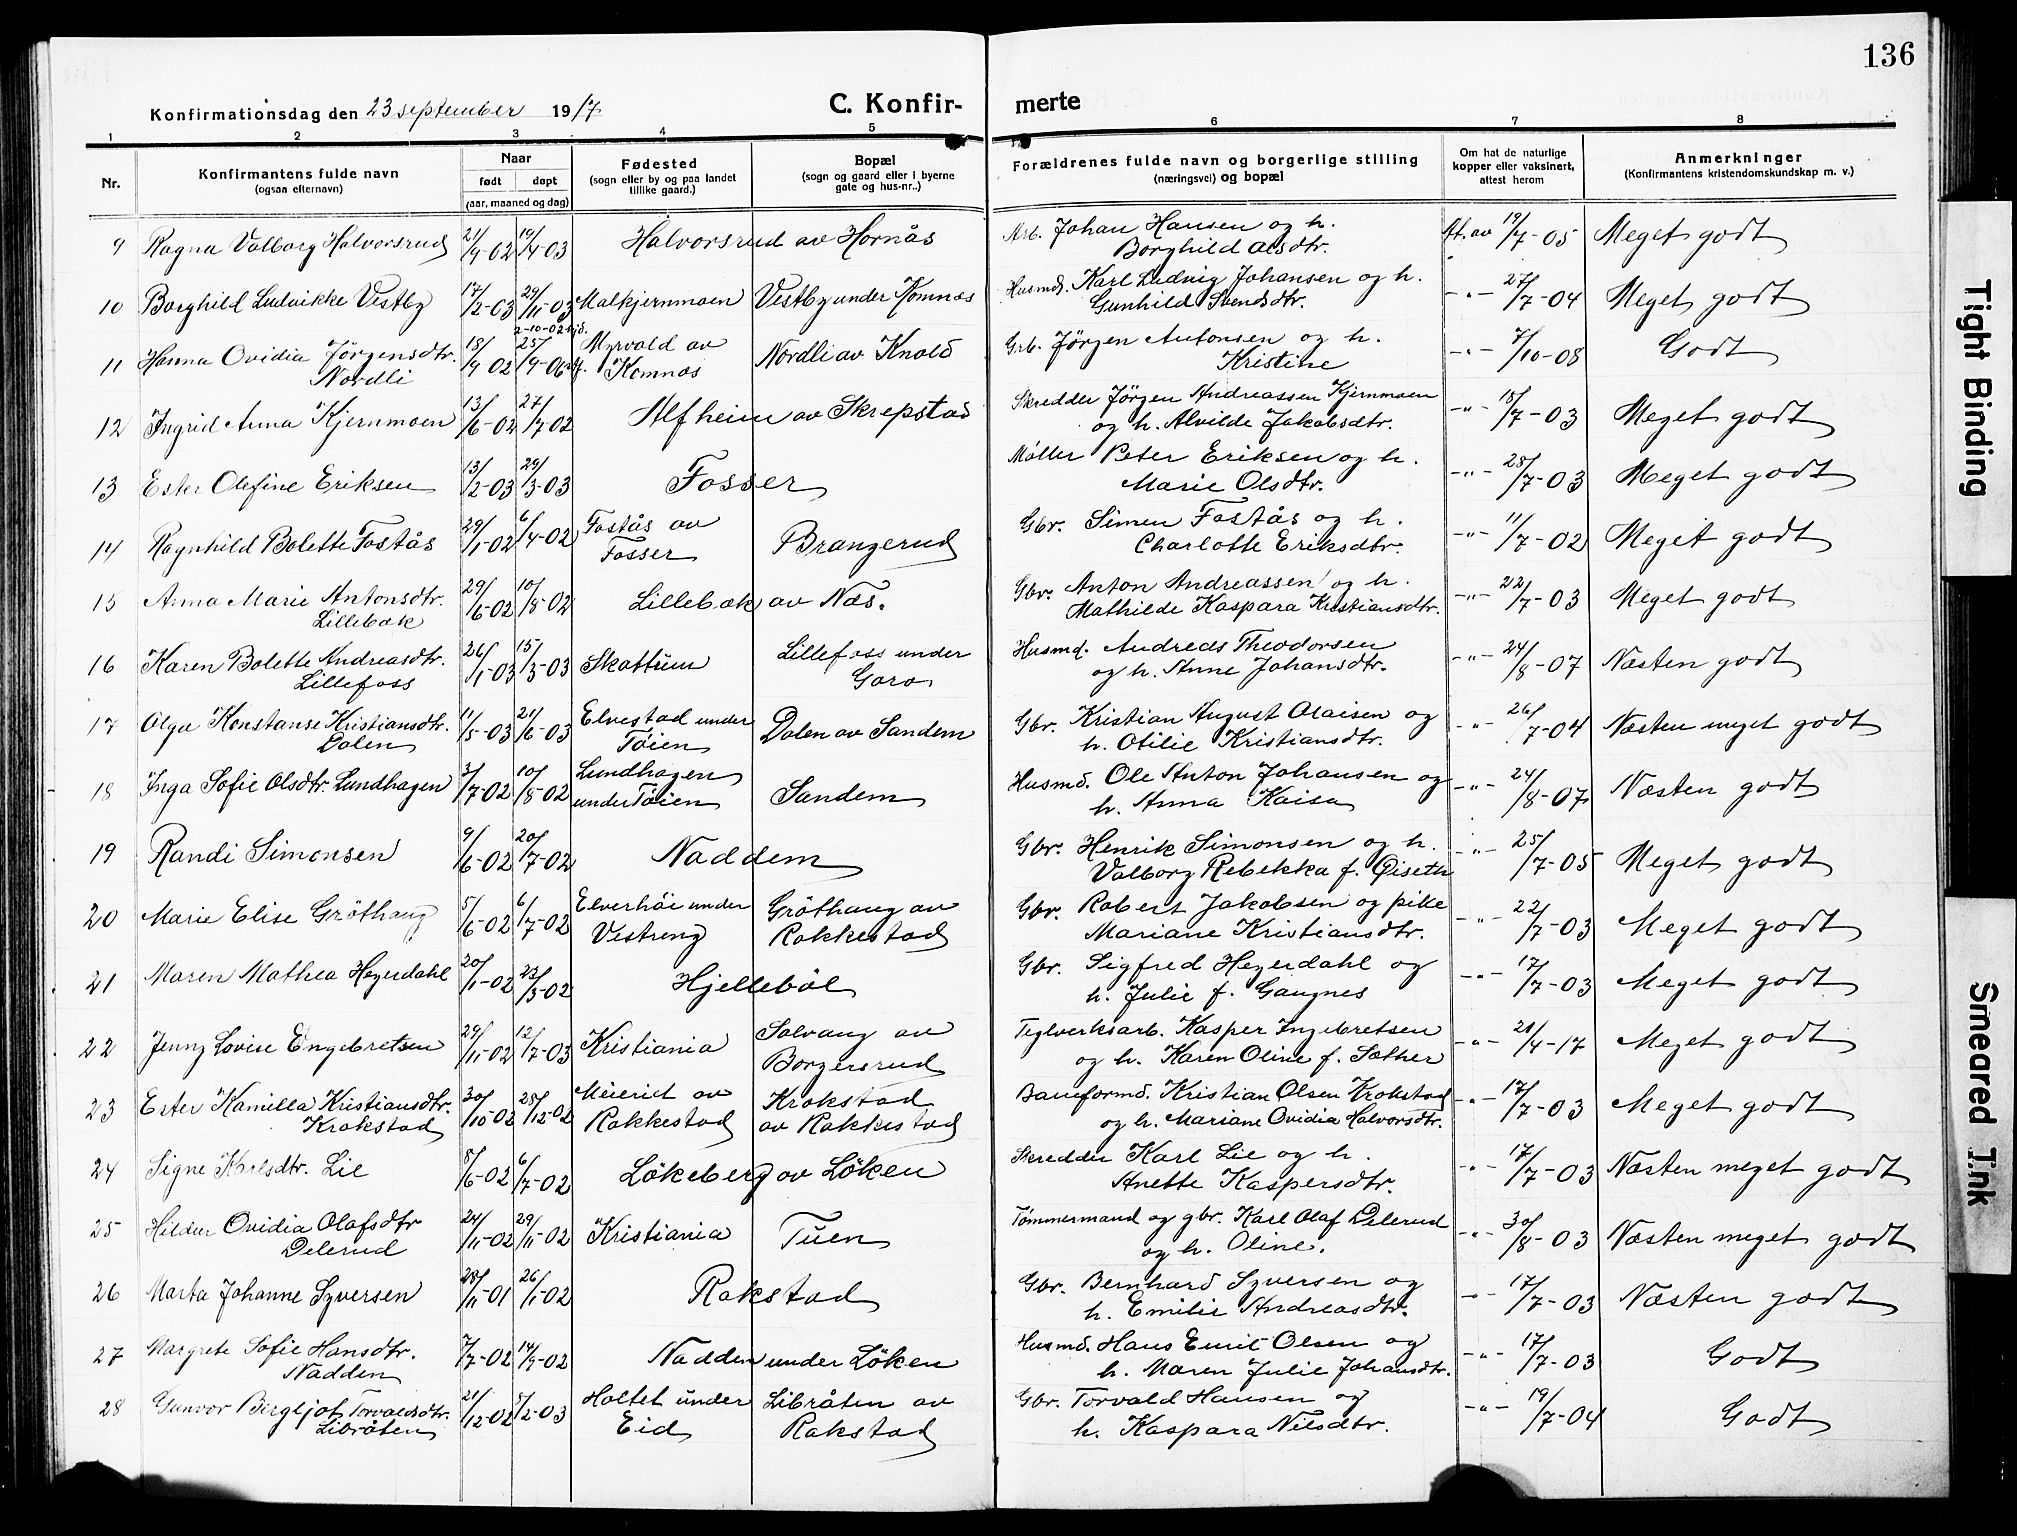 136
Konfirmationsdag den 23 september 1917. C. Konfirmerte
1 2 3 4 5 6 7 8
Nr. Konfirmantens fulde navn (ogsaa efternavn) Naar født døpt (aar, maaned og dag) Fødested (sogn eller by og paa landet tillike gaard.) Bopæl (sogn og gaard eller i byerne gate og hus-nr..) Forældrenes fulde navn og borgerlige stilling (næringsvei) og bopæl Om hat de naturlige kopper eller vaksinert, attest herom Anmerkninger (Konfirmantens kristendomskundskap m. v.)
9 Ragna Valborg Halvorsrud 21/9-02 19/4-03 Halvorsrud av Hornås Arb. Johan Hansen og h. At. av 19/7-05 Meget godt
Borghild Olsdtr.
10 Borghild Ludvikke Vestby 17/2-03 29/11-03 Malkjernmoen Vestby under Komnæs Husmd. Karl Ludvig Johansen og h. -"- 27/7-04 Meget godt
Gunhild Svendsdtr.
2-10-02 hjd.
11 Hanna Ovidia Jørgensdtr. 18/9 02 25/9-06 Myrvold av Nordli av Knold Grb. Jørgen Antonsen og h. -"- 7/10-08 Godt
Nordli Komnæs Kristine
12 Ingrid Anna Kjernmoen 13/6-02 27/7-02 Alfheim av Skrepstad Skredder Jørgen Andreassen Kjernmoen -"- 18/7-03 Meget godt
og h. Alvilde Jakobsdtr.
13 Ester Olefine Eriksen 13/2-03 29/3-03 Fosser Møller Peter Eriksen og h. -"- 28/7-03 Meget godt
Marie Olsdtr.
14 Ragnhild Bolette Fostås 29/1-02 6/4-02 Fostås av Brangerud Gbr. Simen Fostås og h. -"- 11/7-02 Meget godt
Fosser Charlotte Eriksdtr.
15 Anna Marie Antonsdtr. 29/6-02 10/8-02 Lillebæk av Næs. Gbr. Anton Andreassen og h. -"- 22/7-03 Meget godt
Lillebæk Mathilde Kaspara Kristiansdtr.
16 Karen Bolette Andreasdtr. 26/1-03 15/3-03 Skattum Lillefoss under Husmd. Andreas Theodorsen -"- 24/8-07 Næsten godt
Lillefoss Garo og h. Anne Johansdtr.
17 Olga Konstanse Kristiansdtr. 11/5-03 21/6-03 Elvestad under Dalen av Sandem Gbr. Kristian August Olaisen og -"- 26/7-04 Næsten meget godt
Dalen Tøien h. Otilie Kristiansdtr.
18 Inga Sofie Olsdtr. Lundhagen 3/7-02 10/8-02 Lundhagen Sandem Husmd. Ole Anton Johansen og -"- 24/8-07 Næsten godt
under Tøien h. Anna Kaisa
19 Randi Simonsen 9/6-02 20/7-02 Naddem Gbr. Henrik Simonsen og h. -"- 25/7-05 Meget godt
Valborg Rebekka f. Øiseth
20 Marie Elise Grøthaug 5/6-02 6/7-02 Elverhøi under Grøthaug av Gbr. Robert Jakobsen og pike -"- 22/7-03 Meget godt
Vestreng Rakkestad Mariane Kristiansdtr.
21 Maren Mathea Heyerdahl 20/1-02 23/3-02 Hjellebøl Gbr. Sigfred Heyerdahl og -"- 17/7-03 Meget godt
h. Julie f. Gangnes
22 Jenny Lovise Engebretsen 29/11-02 12/7-03 Kristiania Solvang av Teglverksarb. Kasper Ingebretsen -"- 21/4-17 Meget godt
Borgersrud og h. Karen Oline f. Sæther
23 Ester Kamilla Kristiansdtr. 30/10-02 25/12-02 Meieriet av Krokstad Baneformd. Kristian Olsen Krokstad -"- 17/7-03 Meget godt
Krokstad Rakkestad av Rakkestad og h. Mariane Ovidia Halvorsdtr.
24 Signe Karlsdtr. Lie 8/6-02 6/7-02 Løkeberg av Løken Skredder Karl Lie og h. -"- 17/7-03 Næsten meget godt
Anette Kaspersdtr.
25 Hildur Ovidia Olafsdtr 24/11-02 29/11-02 Kristiania Tuen Tømmermand og gbr. Karl Olaf Delerud -"- 30/8-03 Næsten meget godt
Delerud og h. Oline.
26 Marta Johanne Syversen 28/11-01 26/1-02 Rakstad Gbr. Bernhard Syversen og -"- 17/7-03 Næsten godt
h. Emilie Andreasdtr.
27 Margrete Sofie Hansdtr. 7/7-02 14/9-02 Nadden under Løken Husmd. Hans Emil Olsen og -"- 17/7-03 Godt
Nadden h. Maren Julie Johansdtr.
28 Gunvor Bergljot Torvaldsdtr. 21/12-02 8/2-03 Holtet under Libråten av Gbr. Torvald Hansen og -"- 19/7-04 Godt
Libråten Eid Rakstad h. Kaspara Nilsdtr.
Tight Binding
Smeared Ink